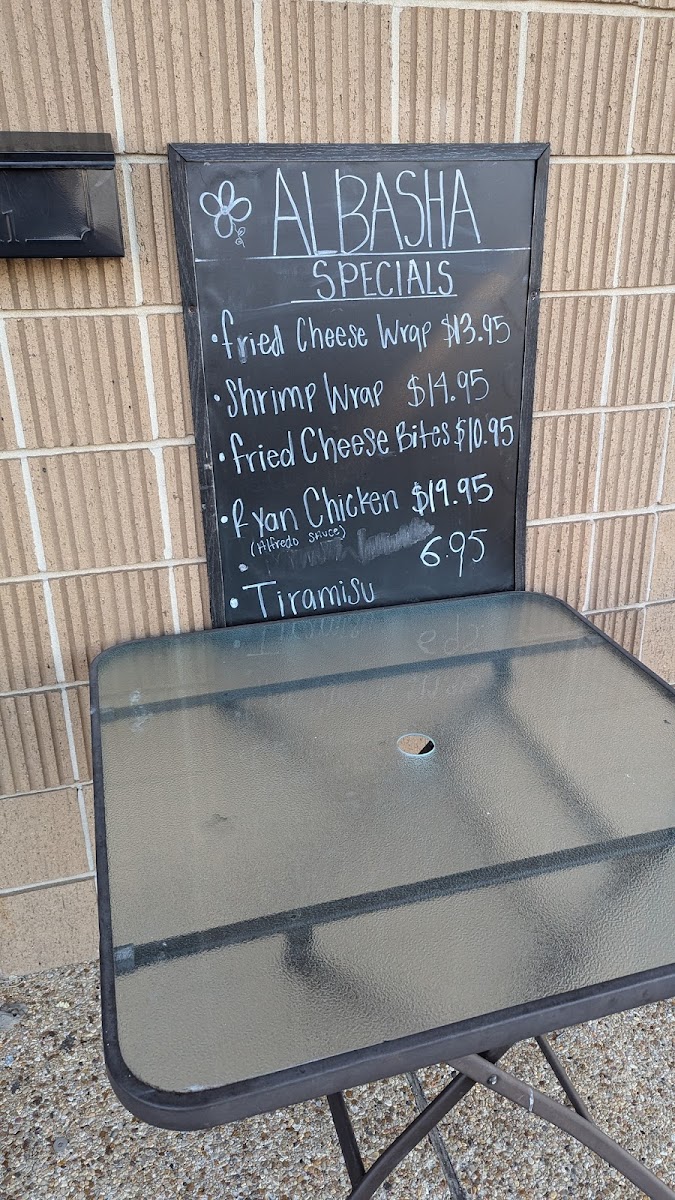 ALBASHA
SPECIALS
• Fried Cheese Wrap $13.95
• Shrimp Wrap $14.95
• Fried Cheese Bites $10.95
• Ryan Chicken $19.95
(Alfredo Sauce)
•
6.95
• Tiramisu